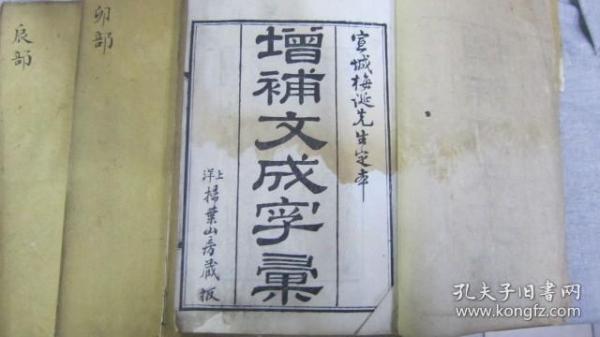 宣城梅诞先生定本
增補文成字彙
上洋掃葉山房藏板
卯部
辰部
孔夫子旧书网
www.kongfz.com